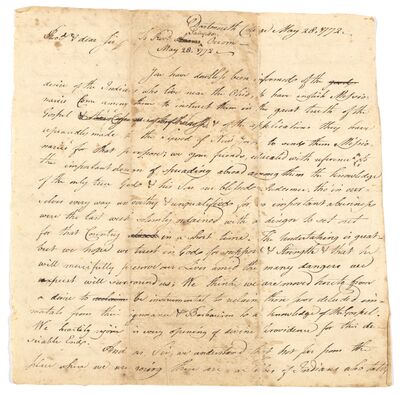 Dartmouth College May 28. 1772.
Revd. & dear Sir To Revd. Sampson Occom
May 28. 1772
You have doubtless been informed of the
desire of the Indians who live near the Ohio to have English Missio-
naries Come among them to instruct them in the great truths of the
Gospel & of the applications they have
repeatedly made to send them Missio-
naries for that purpose; we your friends, educated with
the important design of spreading abroad among them the knowledge
of the only true God & his Son our blessed Redeemer, tho' in our-
selves every way unworthy & unqualified for so important a business
were the last week solemnly ordained with a design to set out
for that Country in a short time. The undertaking is great
but we hope we trust in God for support & strength & that he
will mercifully preserve our Lives amid the many dangers we
expect will surround us; We think we are moved hereto from
a desire to be instrumental to reclaim these poor deluded im-
mortals from their ignorance & Barbarism to a knowledge of the Gospel.
We heartily rejoice in every opening of divine Providence for this de-
sirable End.
And as Sir, we understand that not far from the
place where we are going there are of Indians who